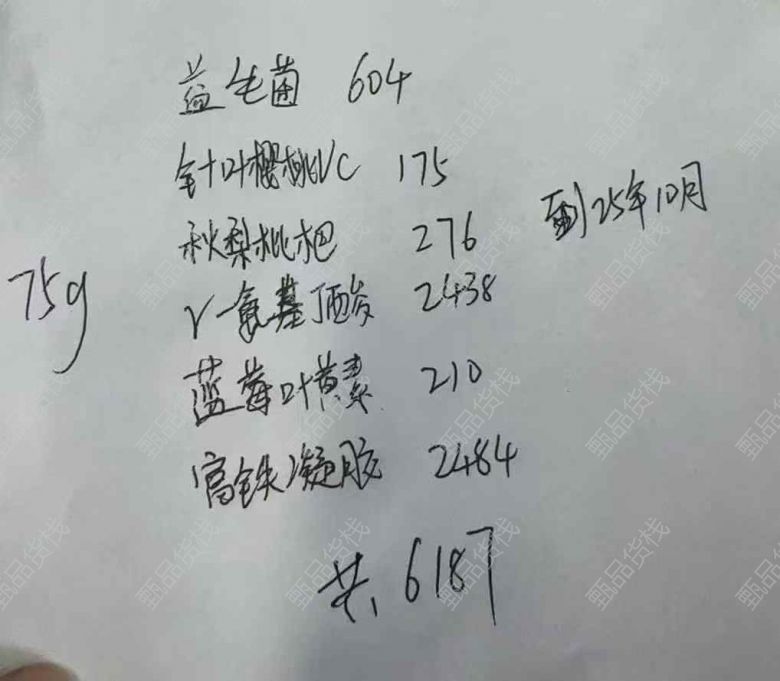 益生菌 604
针叶樱桃VC 175
秋梨枇杷 276
到25年10月
75g
γ-氨基丁酸 2438
蓝莓叶黄素 210
富铁凝胶 2484
共 6187
甄品货栈